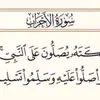 سُورَةُ الْأَحْزَابِ
كَتَهُ يُصَلُّونَ عَلَى النَّبِيِّ
صَلُّوا عَلَيْهِ وَسَلِّمُوا تَسْلِيمًا